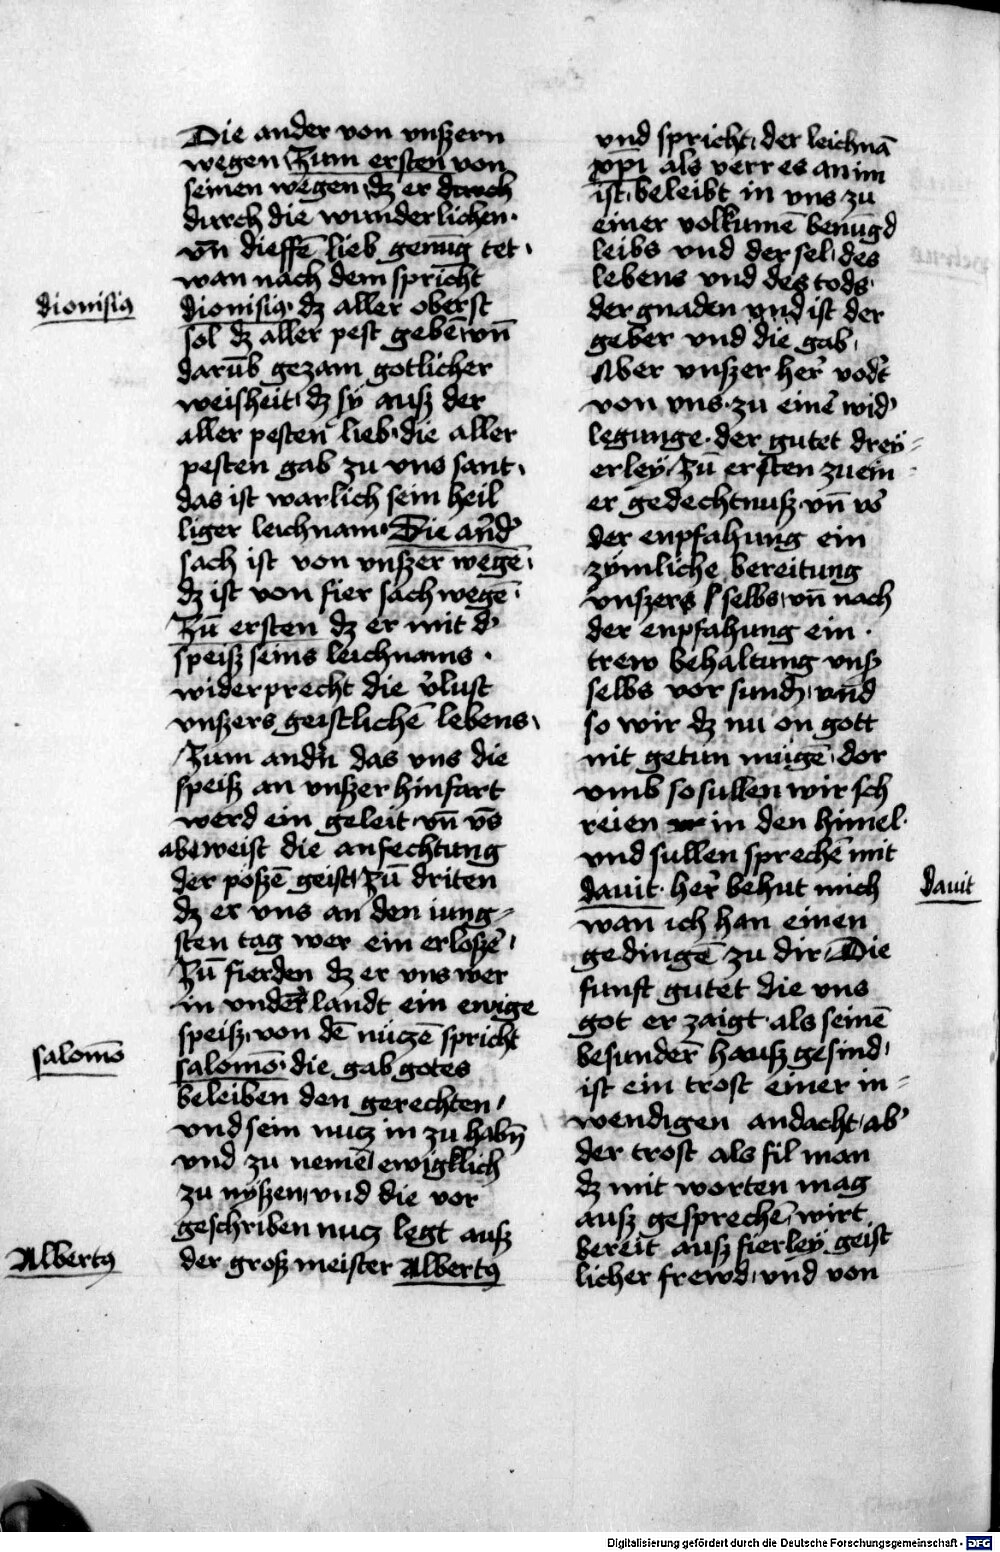 Die ander von vnßern
wegen Zum ersten von
seinen wegen dz er durch
durch die wunderlichen·
vn̄ dieffē lieb genūg tet·
wan nach dem spricht
dionisiꝰ dionisiꝰ· dz aller oberst
sol dz aller pest gebē vn̄
darūb gezam gotlicher
weisheit dz sy auß der
aller pesten lieb· die aller
pesten gab zu vns sant·
das ist warlich sein heil
liger leichnam· Die and̕
sach ist von vnßer wegē·
dz ist von fier sach wegē·
Zū ersten dz er mit d̕
speiß seins leichnams ·
widerprecht die v̕lust
vnßers geistlichē lebens·
Zum and̕n das vns die
speiß an vnßer hinfart
werd ein geleit· vn̄ vō
abeweist die anfechtung
der poßē geist Zū driten
dz er vns an den iung⸗
sten tag wer ein erloße̕·
Zū fierden dz er vns wer
in vnder landt ein ewige
speiß· von dē nuczē spricht
salomō salomō· die gab gotes
beleiben den gerechten·
vnd sein nucz in zu habn̄
vnd zu nemē ewigklich
zu nyßen vnd die vor
geschriben nucz legt auß
Albertꝰ der groß meister Albertꝰ
vnd spricht· der leichnā
xp̄i als verr es an im
ist· beleibt in vns zu
einer volkumē benūgd
leibs vnd der sel· des
lebens vnd des tods·
der gnaden vnd ist der
geber vnd die gab·
Aber vnßer her̕ vod̕t
von vns· zu einē wid̕
legunge· der gutet drey⸗
erley· Zū ersten zu ein
er gedechtnuß· vn̄ vō
der enpfahung ein
zymliche bereitung
vnßers selbs· vn̄ nach
der enpfahung ein ·
trew behaltung vnß
selbs vor sund· vnd
so wir dz nu on gott
nit getun mugē· dor
vmb so sullen wir sch
reien in den himel·
vnd sullen sprechē mit
dauit· her̕ behut mich dauit
wan ich han einen
gedingē zu dir· Die
funft gutet die vns
got er zaigt· als seinē
besunder hauß gesind·
ist ein trost einer in⸗
wendigen andacht· ab̕
der trost als fil man
dz mit worten mag
auß gesprechē wirt
bereit auß fierley geist
licher frewd· vnd von
Digitalisierung gefördert durch die Deutsche Forschungsgemeinschaft - DFG